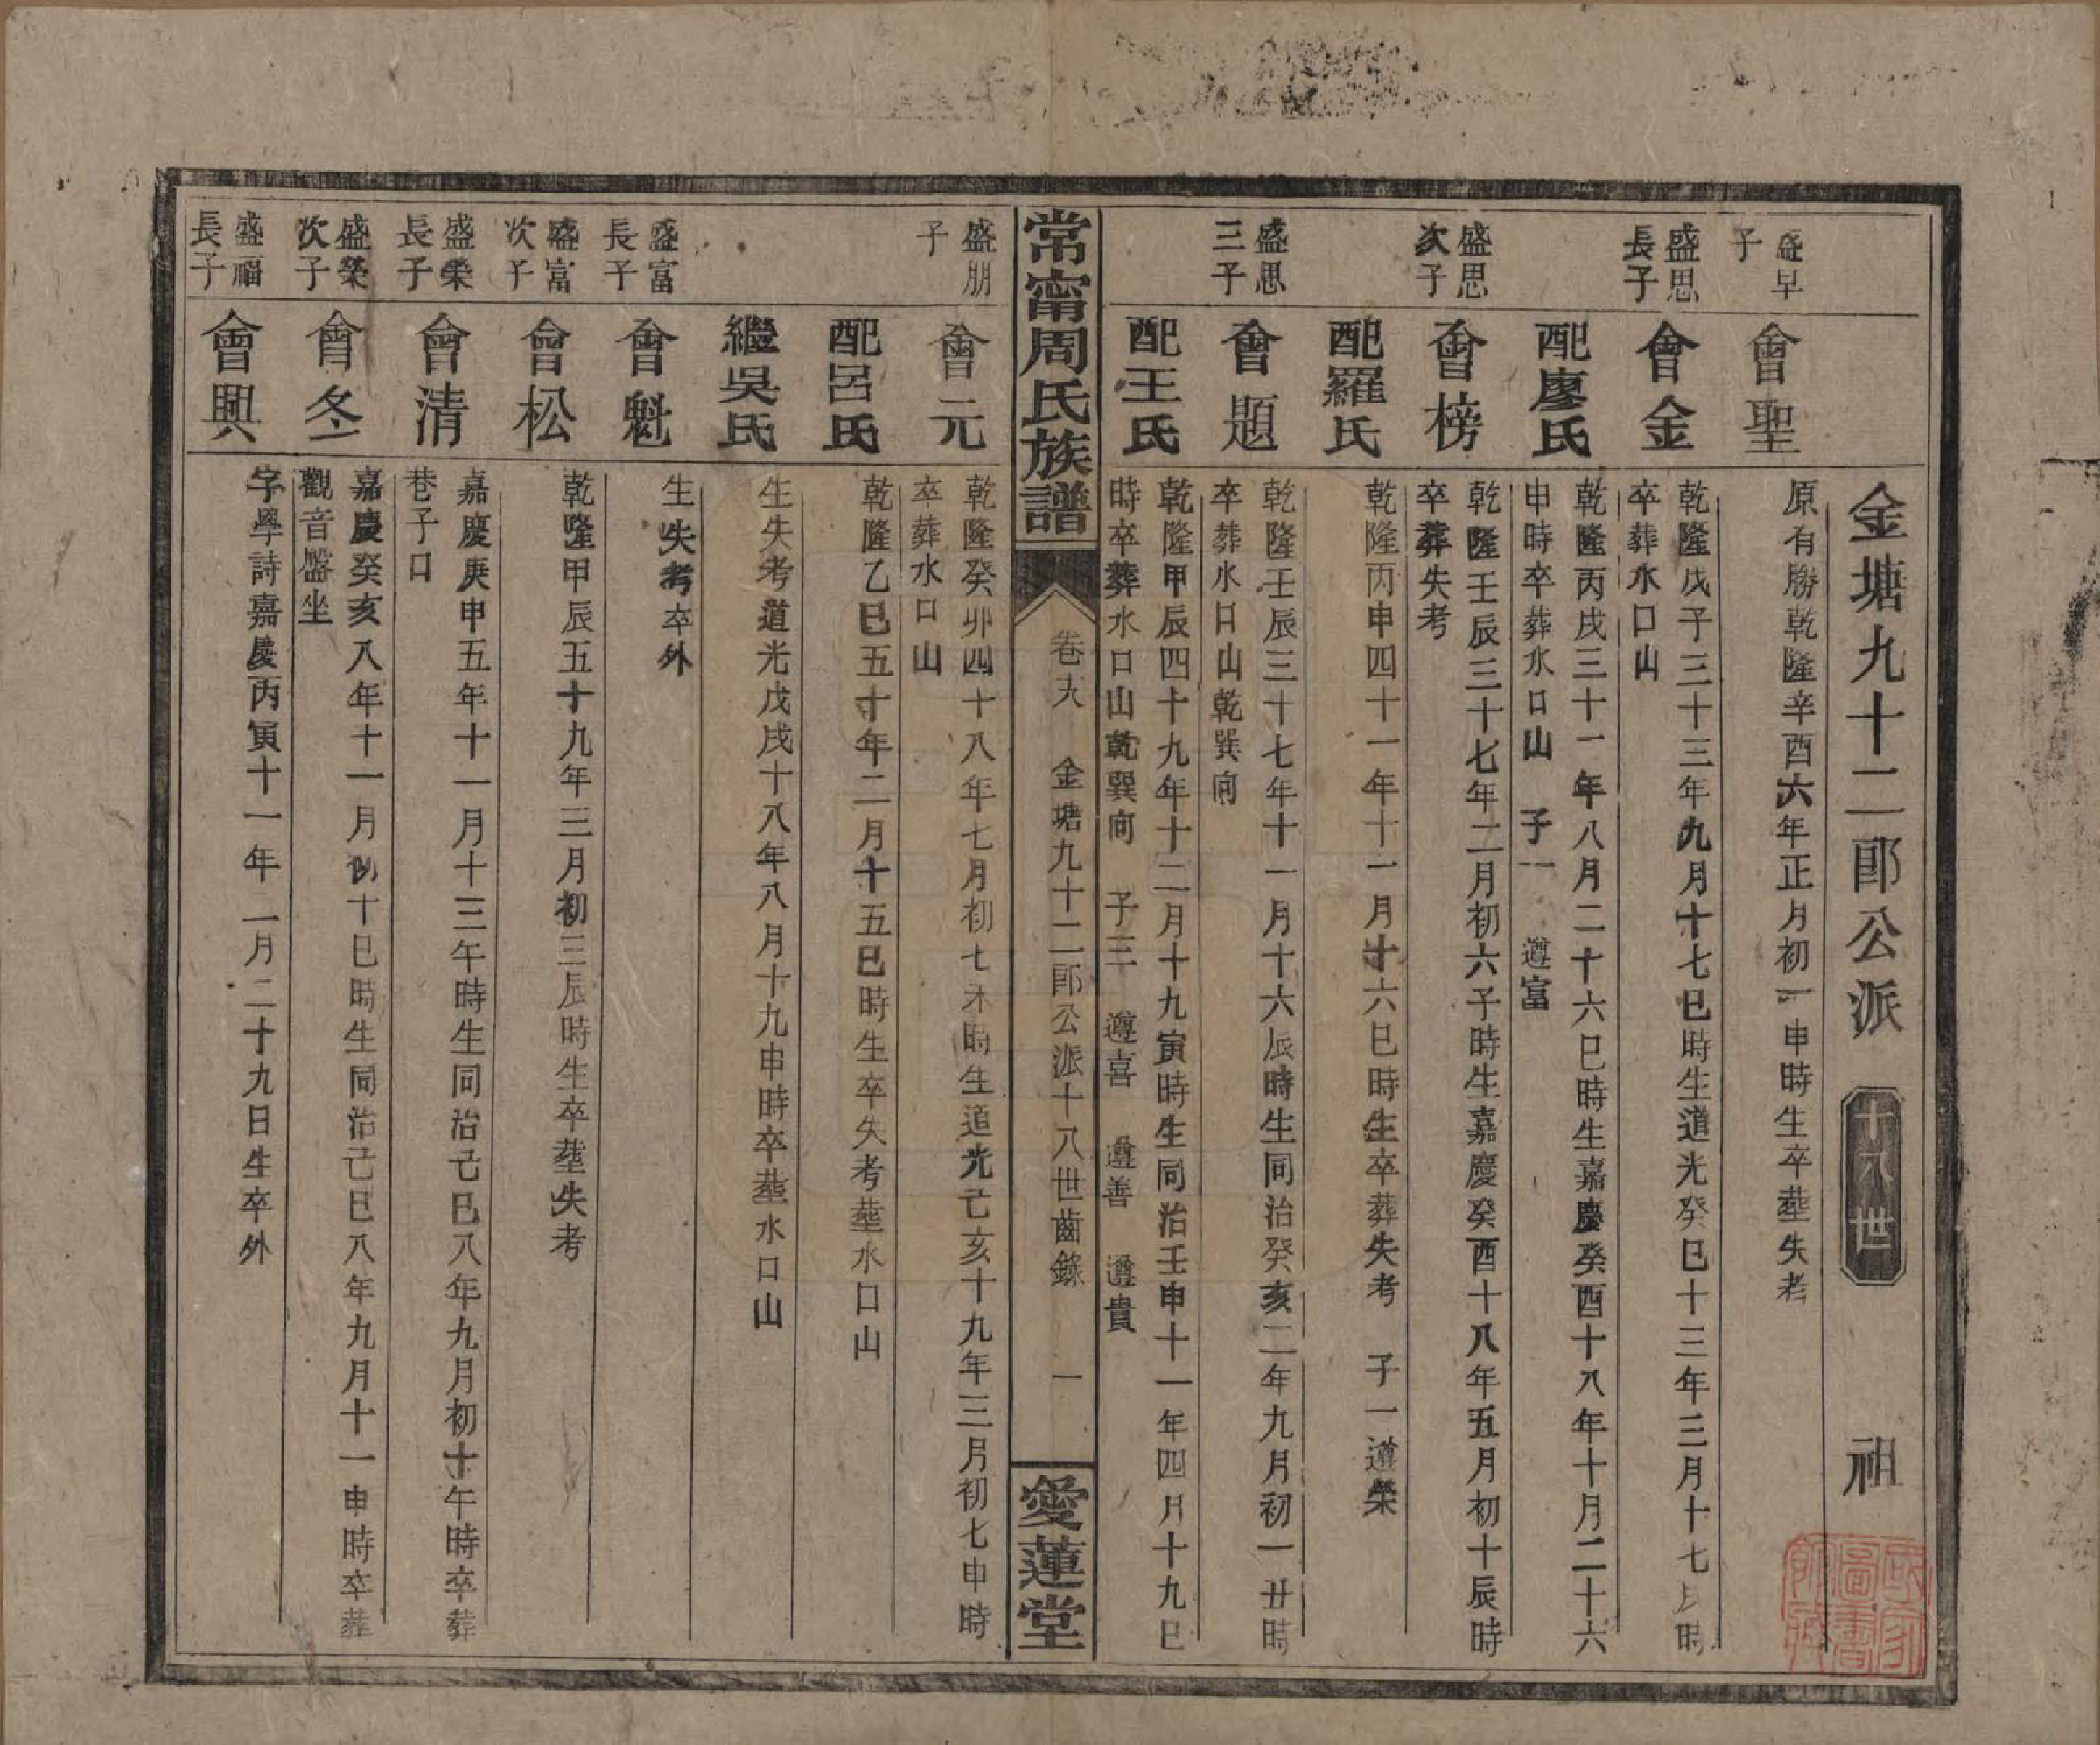 金塘九十二郎公派 十八世 祖
盛早子
會聖
原有勝乾隆辛酉六年正月初一申時生卒塟失考
盛思長子
會金
乾隆戊子三十三年九月十七巳時生道光癸巳十三年三月十七時
卒葬水口山
配廖氏
乾隆丙戌三十一年八月二十六巳時生嘉慶癸酉十八年十月二十六
申時卒葬水口山 子一 遵富
盛思次子
會榜
乾隆壬辰三十七年二月初六子時生嘉慶癸酉十八年五月初十辰時
卒葬失考
配羅氏
乾隆丙申四十一年十一月十六巳時生卒葬失考 子一遵榮
盛思三子
會題
乾隆壬辰三十七年十一月十六辰時生同治癸亥二年九月初一丑時
卒葬水口山乾巽向
配王氏
乾隆甲辰四十九年十二月十九寅時生同治壬申十一年四月十九巳
時卒葬水口山乾巽向 子三 遵喜 遵善 遵貴
常甯周氏族譜 卷九 金塘九十二郎公派十八世齒錄 一 愛蓮堂
盛朋子
會元
乾隆癸卯四十八年七月初七未時生道光己亥十九年三月初七申時
卒葬水口山
配呂氏
乾隆乙巳五十年二月十五巳時生卒失考塟水口山
繼吳氏
生失考道光戊戌十八年八月十九申時卒塟水口山
盛富長子
會魁
生失考卒外
盛富次子
會松
乾隆甲辰五十九年三月初三辰時生卒塟失考
盛榮長子
會清
嘉慶庚申五年十一月十三午時生同治己巳八年九月初十午時卒葬
巷子口
盛榮次子
會冬
嘉慶癸亥八年十一月初十巳時生同治己巳八年九月十一申時卒葬
觀音盤坐
盛福長子
會興
字學詩嘉慶丙寅十一年二月二十九日生卒外
國家圖書館藏